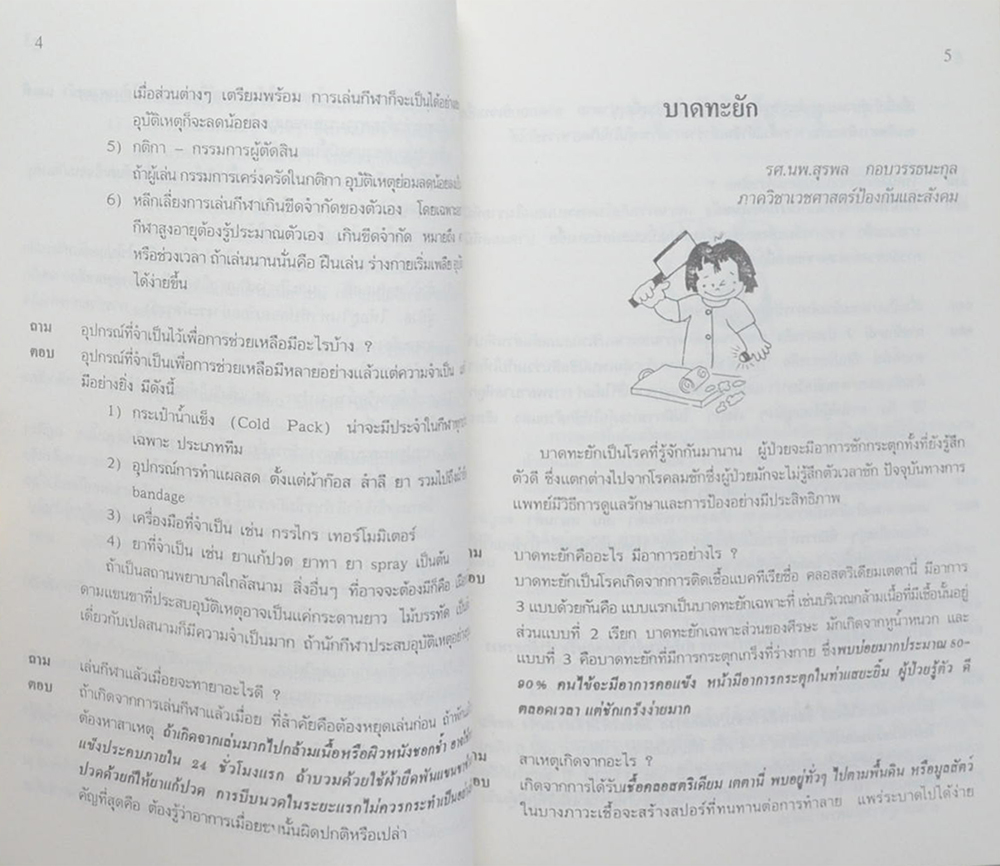 4
เมื่อส่วนต่างๆ เตรียมพร้อม การเล่นกีฬาก็จะเป็นได้อย่าง
อุบัติเหตุก็จะลดน้อยลง
5) กติกา – กรรมการผู้ตัดสิน
ถ้าผู้เล่น กรรมการเคร่งครัดในกติกา อุบัติเหตุย่อมลดน้อยลง
6) หลีกเลี่ยงการเล่นกีฬาเกินขีดจำกัดของตัวเอง โดยเฉพาะ
กีฬาสูงอายุต้องรู้ประมาณตัวเอง เกินขีดจำกัด หมายถึง
หรือช่วงเวลา ถ้าเล่นนานนั่นคือ ฝืนเล่น ร่างกายเริ่มเพลีย
ได้ง่ายขึ้น
ถาม อุปกรณ์ที่จำเป็นไว้เพื่อการช่วยเหลือมีอะไรบ้าง ?
ตอบ อุปกรณ์ที่จำเป็นเพื่อการช่วยเหลือมีหลายอย่างแล้วแต่ความจำเป็น
มีอย่างยิ่ง มีดังนี้
1) กระเป๋าน้ำแข็ง (Cold Pack) น่าจะมีประจำในกีฬาทุก
เฉพาะ ประเภททีม
2) อุปกรณ์การทำแผลสด ตั้งแต่ผ้าก๊อส สำลี ยา รวมไปถึง
bandage
3) เครื่องมือที่จำเป็น เช่น กรรไกร เทอร์โมมิเตอร์
4) ยาที่จำเป็น เช่น ยาแก้ปวด ยาทา ยา spray เป็นต้น
ถ้าเป็นสถานพยาบาลใกล้สนาม สิ่งอื่นๆ ที่อาจจะต้องมีก็คือ
ดามแขนขาที่ประสบอุบัติเหตุอาจเป็นแค่กระดานยาว ไม้บรรทัด
เดี่ยวกับเปลสนามก็มีความจำเป็นมาก ถ้านักกีฬาประสบอุบัติเหตุ
ถาม เล่นกีฬาแล้วเมื่อยจะทายาอะไรดี ?
ตอบ ถ้าเกิดจากการเล่นกีฬาแล้วเมื่อย ที่สำคัยคือต้องหยุดเล่นก่อน
ต้องหาสาเหตุ ถ้าเกิดจากเล่นมากไปกล้ามเนื้อหรือผิวหนังชอกช้ำ
แข็งประคบภายใน 24 ชั่วโมงแรก ถ้าบวมด้วยใช้ผ้ายืดพันแขนขา
ปวดด้วยก็ให้ยาแก้ปวด การบีบนวดในระยะแรกไม่ควรกระทำเป็น
คัญที่สุดคือ ต้องรู้ว่าอาการเมื่อยขานั้นผิดปกติหรือเปล่า
5
บาดทะยัก
รศ.นพ.สุรพล กอบวรรธนะกุล
ภาควิชาเวชศาสตร์ป้องกันและสังคม
บาดทะยักเป็นโรคที่รู้จักกันมานาน ผู้ป่วยจะมีอาการชักกระตุกทั้งที่ยังรู้สึก
ตัวดี ซึ่งแตกต่างไปจากโรคลมชักซึ่งผู้ป่วยมักจะไม่รู้สึกตัวเวลาชัก ปัจจุบันทางการ
แพทย์มีวิธีการดูแลรักษาและการป้องอย่างมีประสิทธิภาพ
าม บาดทะยักคืออะไร มีอาการอย่างไร ?
อบ บาดทะยักเป็นโรคเกิดจากการติดเชื้อแบคทีเรียชื่อ คลอสตริเดียมเตตานี่ มีอาการ
3 แบบด้วยกันคือ แบบแรกเป็นบาดทะยักเฉพาะที่ เช่นบริเวณกล้ามเนื้อที่มีเชื้อนั้นอยู่
ส่วนแบบที่ 2 เรียก บาดทะยักเฉพาะส่วนของศีรษะ มักเกิดจากหูน้ำหนวก และ
แบบที่ 3 คือบาดทะยักที่มีการกระตุกเกร็งที่ร่างกาย ซึ่งพบบ่อยมากประมาณ 80-
90% คนไข้จะมีอาการคอแข็ง หน้ามีอาการกระตุกในท่าแสยะยิ้ม ผู้ป่วยรู้ตัว ดี
ตลอดเวลา แต่ชักเกร็งง่ายมาก
าม สาเหตุเกิดจากอะไร ?
อบ เกิดจากการได้รับเชื้อคลอสตริเดียม เตตานี่ พบอยู่ทั่วๆ ไปตามพื้นดิน หรือมูลสัตว์
ในบางภาวะเชื้อจะสร้างสปอร์ที่ทนทานต่อการทำลาย แพร่ระบาดไปได้ง่าย